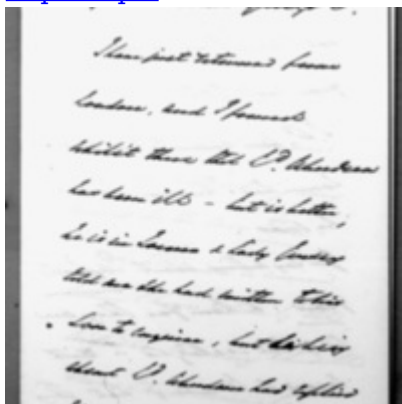 I have just returned from
London, and I found
whilst there that Ld. Aberdeen
has been ill - but is better,
he is in Town & Lady
told me she had written to his
Son to enquire, but
about Ld. Aberdeen had replied